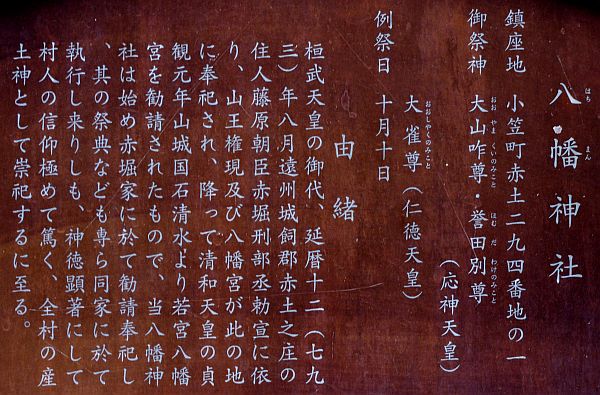 八幡神社
はち まん
鎮座地 小笠町赤土二九四番地の一
御祭神 大山咋尊・誉田別尊
おお やま くいのみこと ほむ だ わけのみこと
（応神天皇）
大雀尊（仁徳天皇）
おおしやくのみこと
例祭日 十月十日
由緒
桓武天皇の御代、延暦十二（七九
三）年八月遠州城飼郡赤土之庄の
住人藤原朝臣赤堀刑部丞勅宣に依
り、山王権現及び八幡宮が此の地
に奉祀され、降って清和天皇の貞
観元年山城国石清水より若宮八幡
宮を勧請されたもので、当八幡神
社は始め赤堀家に於て勧請奉祀し
、其の祭典なども専ら同家に於て
執行し来りしも、神徳顕著にして
村人の信仰極めて篤く、全村の産
土神として崇祀するに至る。